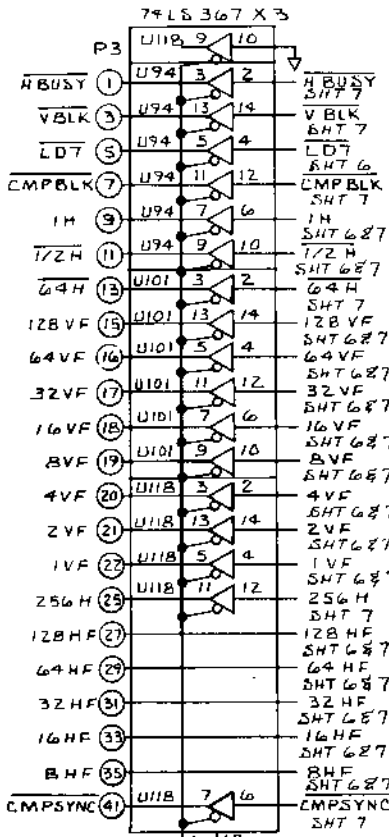 74LS367 X 3
P3 U118 9 10
H BUSY 1 U94 3 2 H BUSY
SHT 7
V BLK 3 U94 13 14 V BLK
SHT 7
LD7 5 U94 5 4 LD7
SHT 6
CMPBLK 7 U94 11 12 CMPBLK
SHT 7
1H 9 U94 7 6 1H
SHT 6&7
1/2 H 11 U94 9 10 1/2 H
SHT 6&7
64H 13 U101 3 2 64H
SHT 7
128 VF 15 U101 13 14 128 VF
SHT 6&7
64VF 16 U101 5 4 64VF
SHT 6&7
32VF 17 U101 11 12 32VF
SHT 6&7
16VF 18 U101 7 6 16VF
SHT 6&7
8VF 19 U101 9 10 8VF
SHT 6&7
4VF 20 U118 3 2 4VF
SHT 6&7
2VF 21 U118 13 14 2VF
SHT 6&7
1VF 22 U118 5 4 1VF
SHT 6&7
256H 25 U118 11 12 256H
SHT 7
128HF 27 128 HF
SHT 6&7
64HF 29 64 HF
SHT 6&7
32HF 31 32 HF
SHT 6&7
16HF 33 16HF
SHT 6&7
8HF 35 8HF
SHT 6&7
CMPSYNC 41 U118 7 6 CMPSYNC
SHT 7